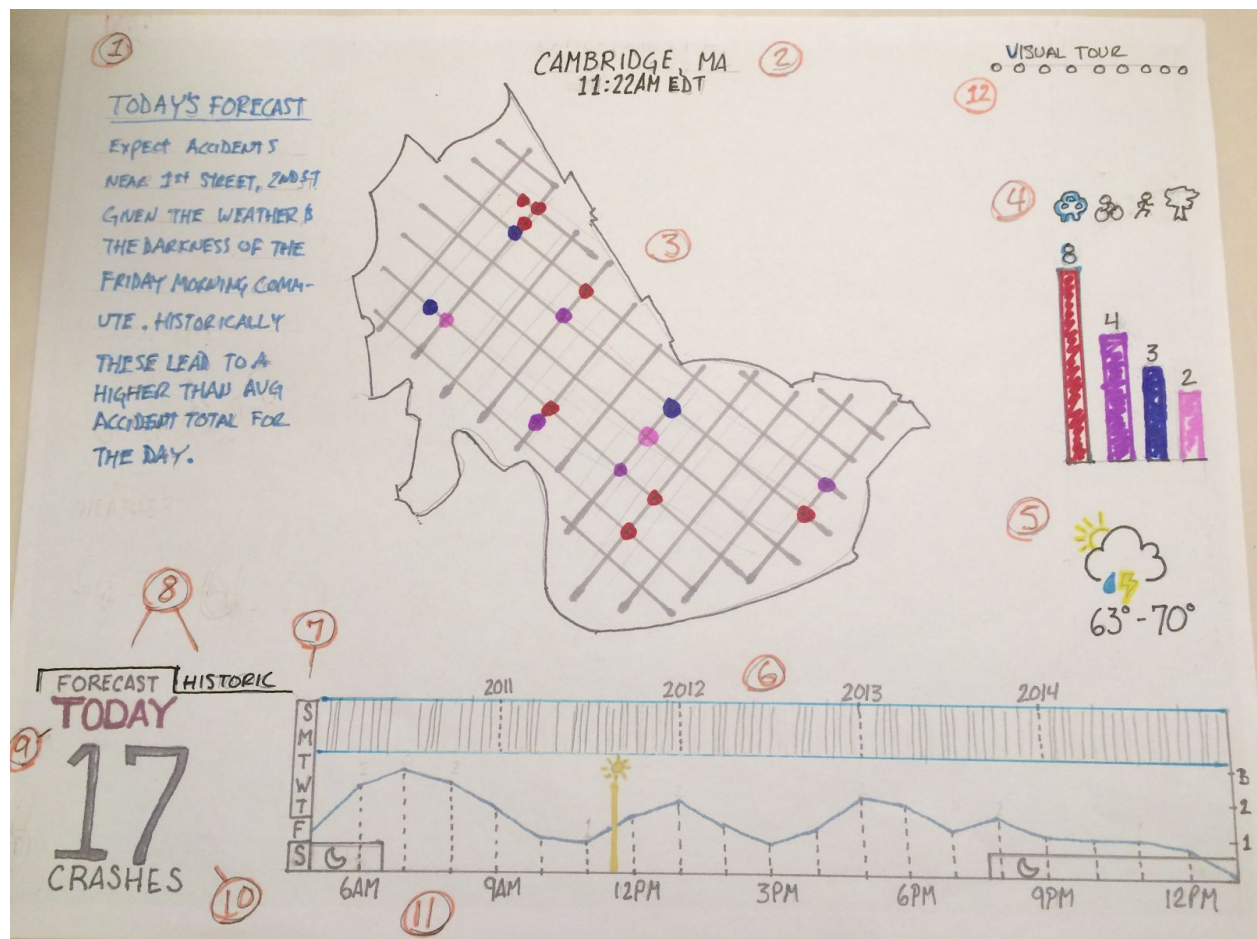 1
CAMBRIDGE, MA
11:22AM EDT
2
VISUAL TOUR
12
TODAY'S FORECAST
EXPECT ACCIDENTS
NEAR 1ST STREET, 2ND ST
GIVEN THE WEATHER &
THE DARKNESS OF THE
FRIDAY MORNING COMM-
UTE. HISTORICALLY
THESE LEAD TO A
HIGHER THAN AVG
ACCIDENT TOTAL FOR
THE DAY.
3
4
8
4
3
2
5
63°-70°
8
7
6
FORECAST
HISTORIC
TODAY
9
17
CRASHES
10
2011
2012
2013
2014
S
M
T
W
T
F
S
3
2
1
6AM
9AM
12PM
3PM
6PM
9PM
12PM
11